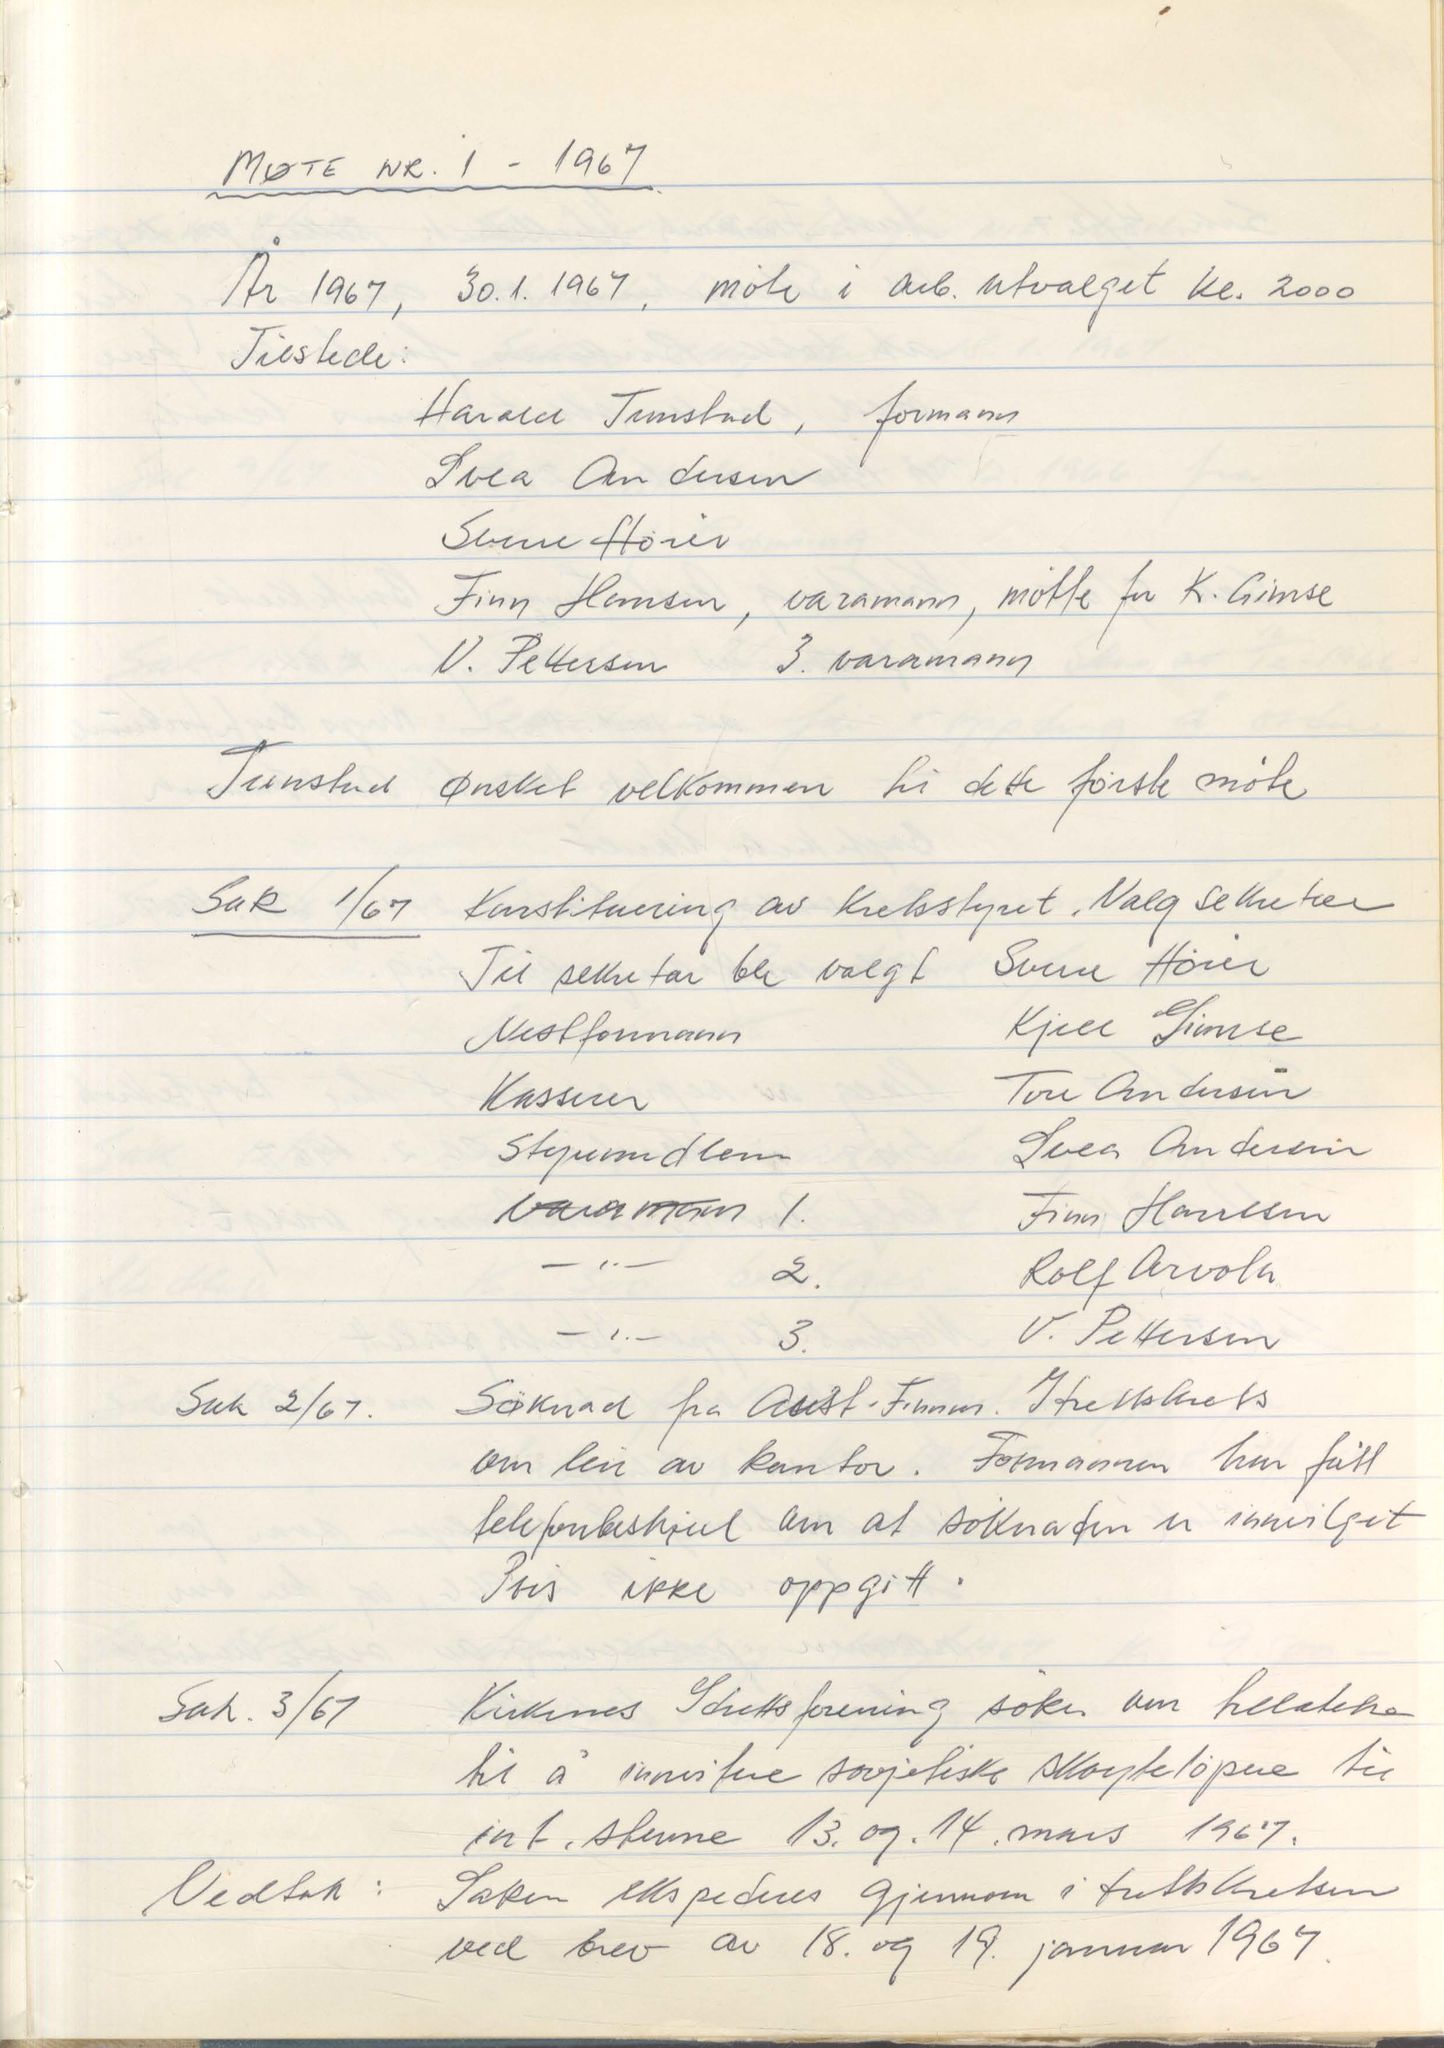 MØTE NR. 1 - 1967
År 1967, 30.1.1967, möte i arb. utvalget kl. 2000
Tilstede:
Harald Tunstad, formann
Svea Andersen
Sverre Hörier
Finn Hansen, varamann, mötte for K. Gimse
V. Pettersen 3. varamann
Tunstad ønsket velkommen til dette første møte
Sak 1/67 Konstituering av Kretsstyret. Valg sekretær
Til sekretær ble valgt Sverre Hörier
Nestformann Kjell Gimse
Kasserer Tore Andersen
Styremedlem Svea Andersen
Varamann 1. Finn Hanssen
— " — 2. Rolf Arvola
— " — 3. V. Pettersen
Sak 2/67. Søknad fra Aust-Finnm. Idrettskrets
om leie av kontor. Formannen har fått
telefonbeskjed om at søknaden er innvilget
Pris ikke oppgitt.
Sak. 3/67 Kirkenes Idrettsforening söker om tillatelse
til å invitere sovjetiske skøyteløpere til
int. stevne 13. og. 14. mars 1967.
Vedtak: Saken ekspederes gjennom idrettskretsen
ved brev av 18. og 19. januar 1967.